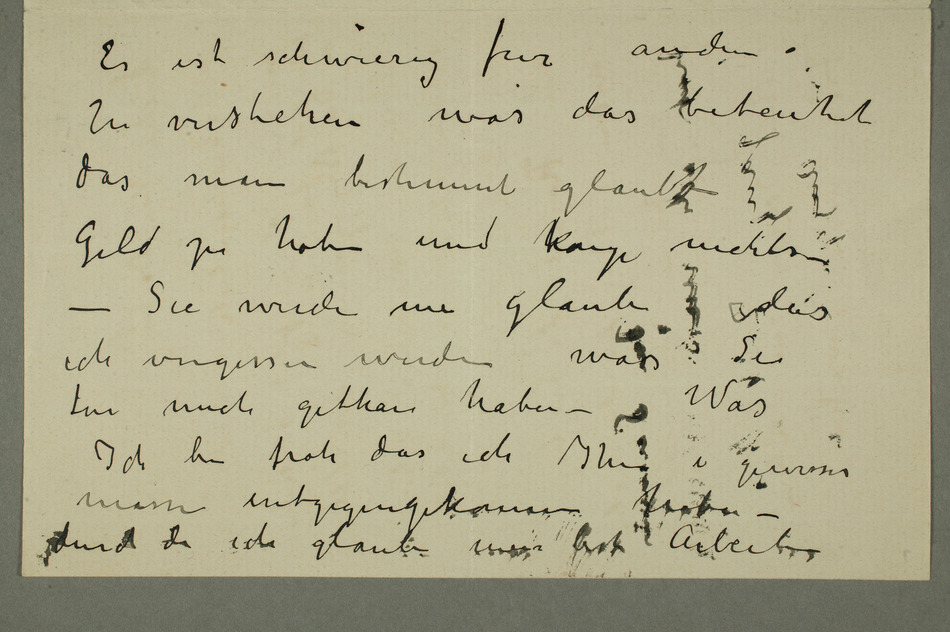 Es ist schwierig für andere
Zu verstehen was das beteutet
das man bestimmt glaubt
Geld zu haben und kange nichts
— Sie werden nie glauben das
ich vergessen werden was Sie
für mich gethan haben — Was
Ich bin froh das ich Ihnen i gewisser
masse entgegengekommen haben —
durch da ich glaube Arbeit